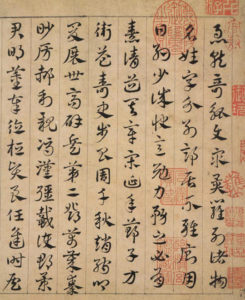 急就奇觚與衆異羅列諸物
名姓字分別部居不雜廁用
日約少誠快意勉力務之必有
憙請道其章宋延年鄭子方
衛益壽史步昌周千秋趙孺卿
爰展世高辟兵第二鄧萬歲秦
妙房郝利親馮漢彊戴護郡景
君明董奉德桓賢良任逢時侯